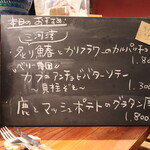 本日のおすすめ
三河湾
炙り鰆とカリフラワーのカルパッチョ
1.80
ベリー農園
カブのアンチョビバターソテー
真珠ぞえ〜
1.300
鹿とマッシュポテトのグラタン
1.800